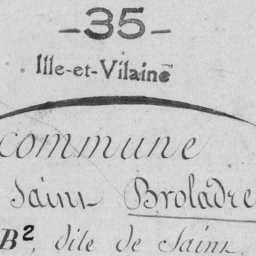 -35-
Ille-et-Vilaine
commune
Saint Broladre
B², dite de Saint